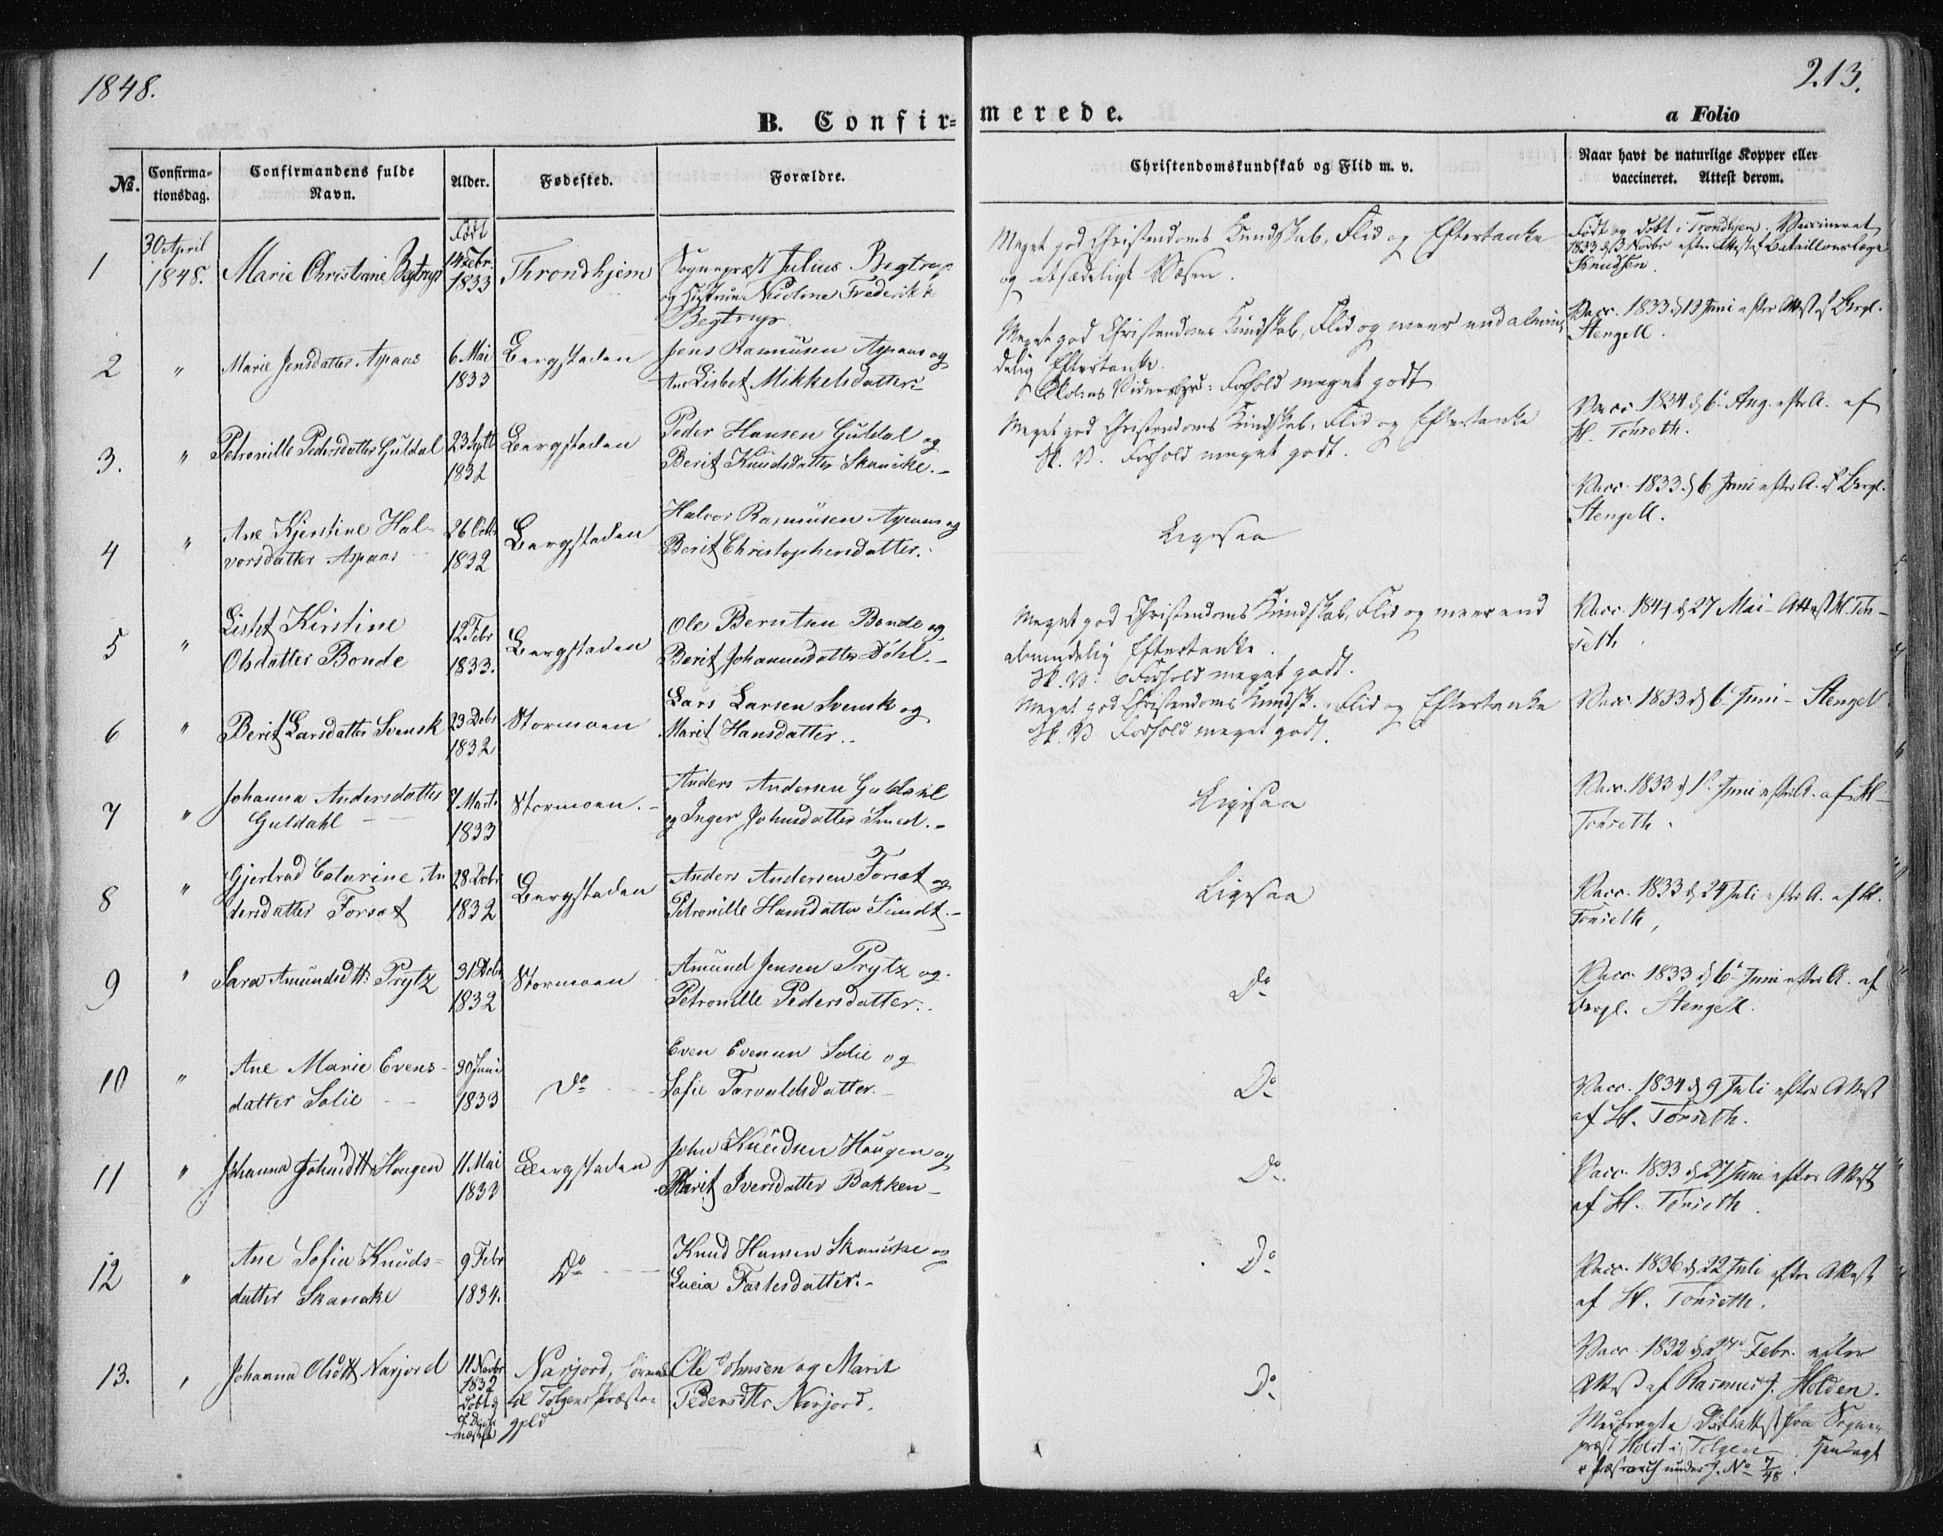 1848.
213.
B. Confir=
merede.
a Folio
No.
Confirma-
tionsdag.
Confirmandens fulde
Navn.
Alder.
Fødested.
Forældre.
Christendomskundskab og Flid m. v.
Naar havt de naturlige Kopper eller
vaccineret. Attest derom.
1
30 April
1848.
Marie Christiane Begtrup
Født
14 Febr
1833
Throndhjem
Sognepræst Julius Begtrup
og Hustrue Nicoline Frederikke
Begtrup.
Meget god Christendoms Kundskab, Flid og Eftertanke
og et sædeligt Væsen.
Født og døbt i Trondhjem. Vaccineret
1833 d 3 Novbr efter Attest af Bataillonslæge
Knudsen.
2
"
Marie Jensdatter Aspaas
6 Mai
1833
Bergstaden
Jens Rasmusen Aspaas og
Ane Lisbet Mikkelsdatter.
Meget god Christendoms Kundskab, Flid og meer end almin-
delig Eftertanke.
Skolens Vidnesbyrd: Forhold meget godt
Vacc. 1833 d 13 Juni efter Attest af Bergl.
Stengell.
3.
"
Petronille Pedersdatter Guldal
23 Septb
1832
Bergstaden
Peder Hansen Guldal og
Berit Knudsdatter Skancke.-
Meget god Christendoms Kundskab, Flid og Eftertanke
Sk. V. Forhold meget godt.
Vacc. 1834 d 6 Aug. efter A. af
H. Tønseth.
4
"
Ane Kjerstine Hal-
vorsdatter Aspaas
26 Octb
1832
Bergstaden
Halvor Rasmusen Aspaas og
Berit Christophersdatter.
Ligesaa
Vacc. 1833 d 6 Juni efter A. af Bergl.
Stengell.
5
"
Lisbet Kirstine
Olsdatter Bonde
12 Febr
1833.
Bergstaden
Ole Berntsen Bonde og
Berit Johannesdatter Døhl.-
Meget god Christendoms Kundskab, Flid og meer end
almindelig Eftertanke.
Sk. V. Forhold meget godt.
Vacc. 1844 d 27 Mai - Attest H. Tøn-
seth.
6
"
Berit Larsdatter Svensk
23 Debr
1832
Stormoen
Lars Larsen Svensk og
Marit Hansdatter.
Meget god Christendoms Kundsk. Flid og Eftertanke
Sk. V. Forhold meget godt.
Vacc. 1833 d 6 Juni - Stengell
7
"
Johanna Andersdatter
Guldahl
7 Marts
1833
Stormoen.
Anders Andersen Guldahl
og Inger Johnsdatter Smed.-
Ligesaa
Vacc. 1833 d 1 Juni efter A. af H.
Tønseth.
8
"
Gjertrud Catarine An
dersdatter Forsæt
28 Debr
1832
Bergstaden
Anders Andersen Forsæt og
Petronille Hansdatter Sundt.-
Ligesaa
Vacc. 1833 d 24 Juli efter A. af H.
Tønseth,
9
"
Sara Amundsdtt: Prytz
31 Debr
1832
Stormoen
Amund Jensen Prytz og
Petronille Pedersdatter.
Do
Vacc. 1833 d 6 Juni efter A. af
Bergl. Stengell.
10
"
Ane Marie Evens-
datter Solie
30 Juni
1833
Do
Even Evensen Solie og
Sofie Tarvaldsdatter.
Do
Vacc. 1834 d 9 Juli efter Attest
af H. Tønseth.
11
"
Johanna Johnsdtt: Haugen
11 Mai
1833
Bergstaden
John Knudsen Haugen og
Marit Iversdatter Bakken-
Do.
Vacc. 1833 d 27 Juni efter Attest
af H. Tønseth.
12
"
Ane Sofia Knuds-
datter Skancke
9 Febr
1834.
Do
Knud Hansen Skancke og
Lucia Tartesdatter.-
Do
Vacc. 1836 d 22 Juli efter Attest
af H. Tønseth.
13.
"
Johanna Olsdtt Narjord
11 Novbr
1832
Døbt
Narjord,
til Tolgens Præste-
gjeld
Ole Johnsen og Marit
Pedersdttr Narjord.
Do
Vacc. 1832 d 27 Febr. efter
Attest af Rasmus J. Holden.
Døbeattest fra Sogne-
præst Holst i Tolgen
under J. No 7/48.